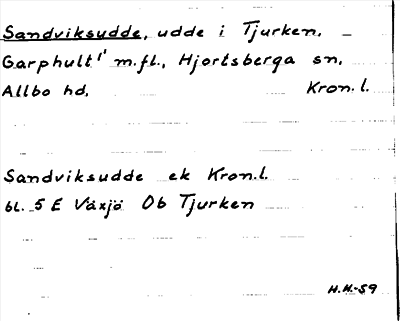 Sandviksudde, udde i Tjurken.
Garphult¹ m.fl., Hjortsberga sn,
Allbo hd, Kron.l.
Sandviksudde ek Kron.l.
bl. 5 E Växjö Ob Tjurken
H.H.-59